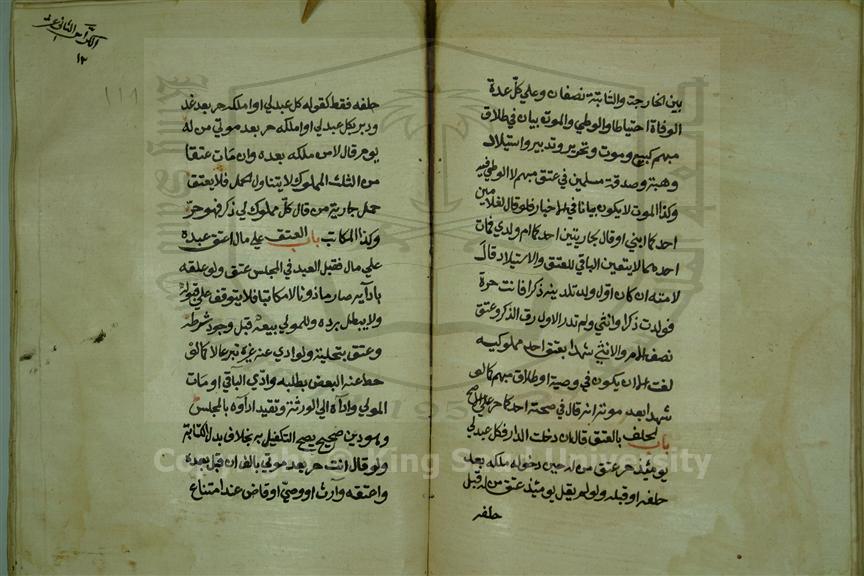 بين الخارجة والثابتة نصفان وعلي كلّ عدة
الوفاة احتياطا والوطي والموت بيان في طلاق
مبهم كبيع وموت وتحرير وتدبير واستيلاد
وهبة وصدقة مسلمين في عتق مبهم لا الوطي فيه
وكذا الموت لا يكون بيانا في الاخبار فلو قال لغلامين
احدكما ابني او قال جاريتين احدكما ام ولدي فمات
احدهما لا يتعين الباقي للعتق والاستيلاد قال
لامته ان كان اول ولد تلدينه ذكرا فانت حرة
فولدت ذكرا وانثي ولم تدر الاول رق الذكر وعتق
نصف الام والانثي شهدا بعتق احد مملوكيه
لغت الا ان يكون في وصية او طلاق مبهم كما لو
شهدا بعد موته انه قال في صحته احدكما حر علي الاصح
باب الحلف بالعتق قال ان دخلت الدار فكل عبد لي
يومئذ حر عتق من له حين دخوله ملكه بعد
حلفه او قبله ولو لم يقل يومئذ عتق من له قبل
حلفه
الكراس الثاني عشر
١٢
١١١
حلفه فقط كقوله كل عبد لي او املكه حر بعد غد
ودبر بكل عبد لي او املكه حر بعد موتي من له
يوم قال لا من ملكه بعده وان مات عتقا
من الثلث المملوك لا يتناول الحمل فلا يعتق
حمل جارية من قال كلّ مملوك لي ذكر فهو حرّ
وكذا المكاتب باب العتق علي مال اعتق عبده
علي مال فقبل العبد في المجلس عتق ولو علقه
بادآيه صار ماذونا لا مكاتبا فلا يتوقف علي قبوله
ولا يبطل برده وللمولي بيعه قبل وجود شرطه
وعتق بتخلية ولو ادي عنه غيره تبرعا لا كما لو
حط عنه البعض بطلبه وادّي الباقي او مات
المولي وادآه الي الورثة وتقيد ادآوه بالمجلس
وهو دين صحيح يصح التكفيل به بخلاف بدل الكتابة
ولو قال انت حر بعد موتي بالف ان قبل بعده
واعتقه وارث او وصيّ او قاض عند امتناع
Copyright © King Saud University
1957